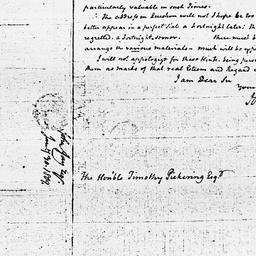 particularly valuable in such Times.
The address in Question will not I hope be too
better appear in a perfect State a fortnight later; th
regretted, a fortnight, sooner. there must b
arrange the various materials - much will be
I will not apologize for these Hints, being pers
them as marks of that real Esteem and Regard
I am Dear Sir
Your
The Honble Timothy Pickering Esqr
John Jay Esqr